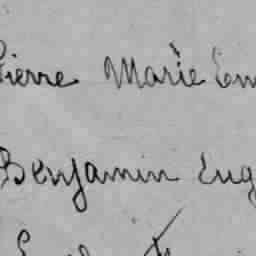 Pierre Marie Em
Benjamin Eug